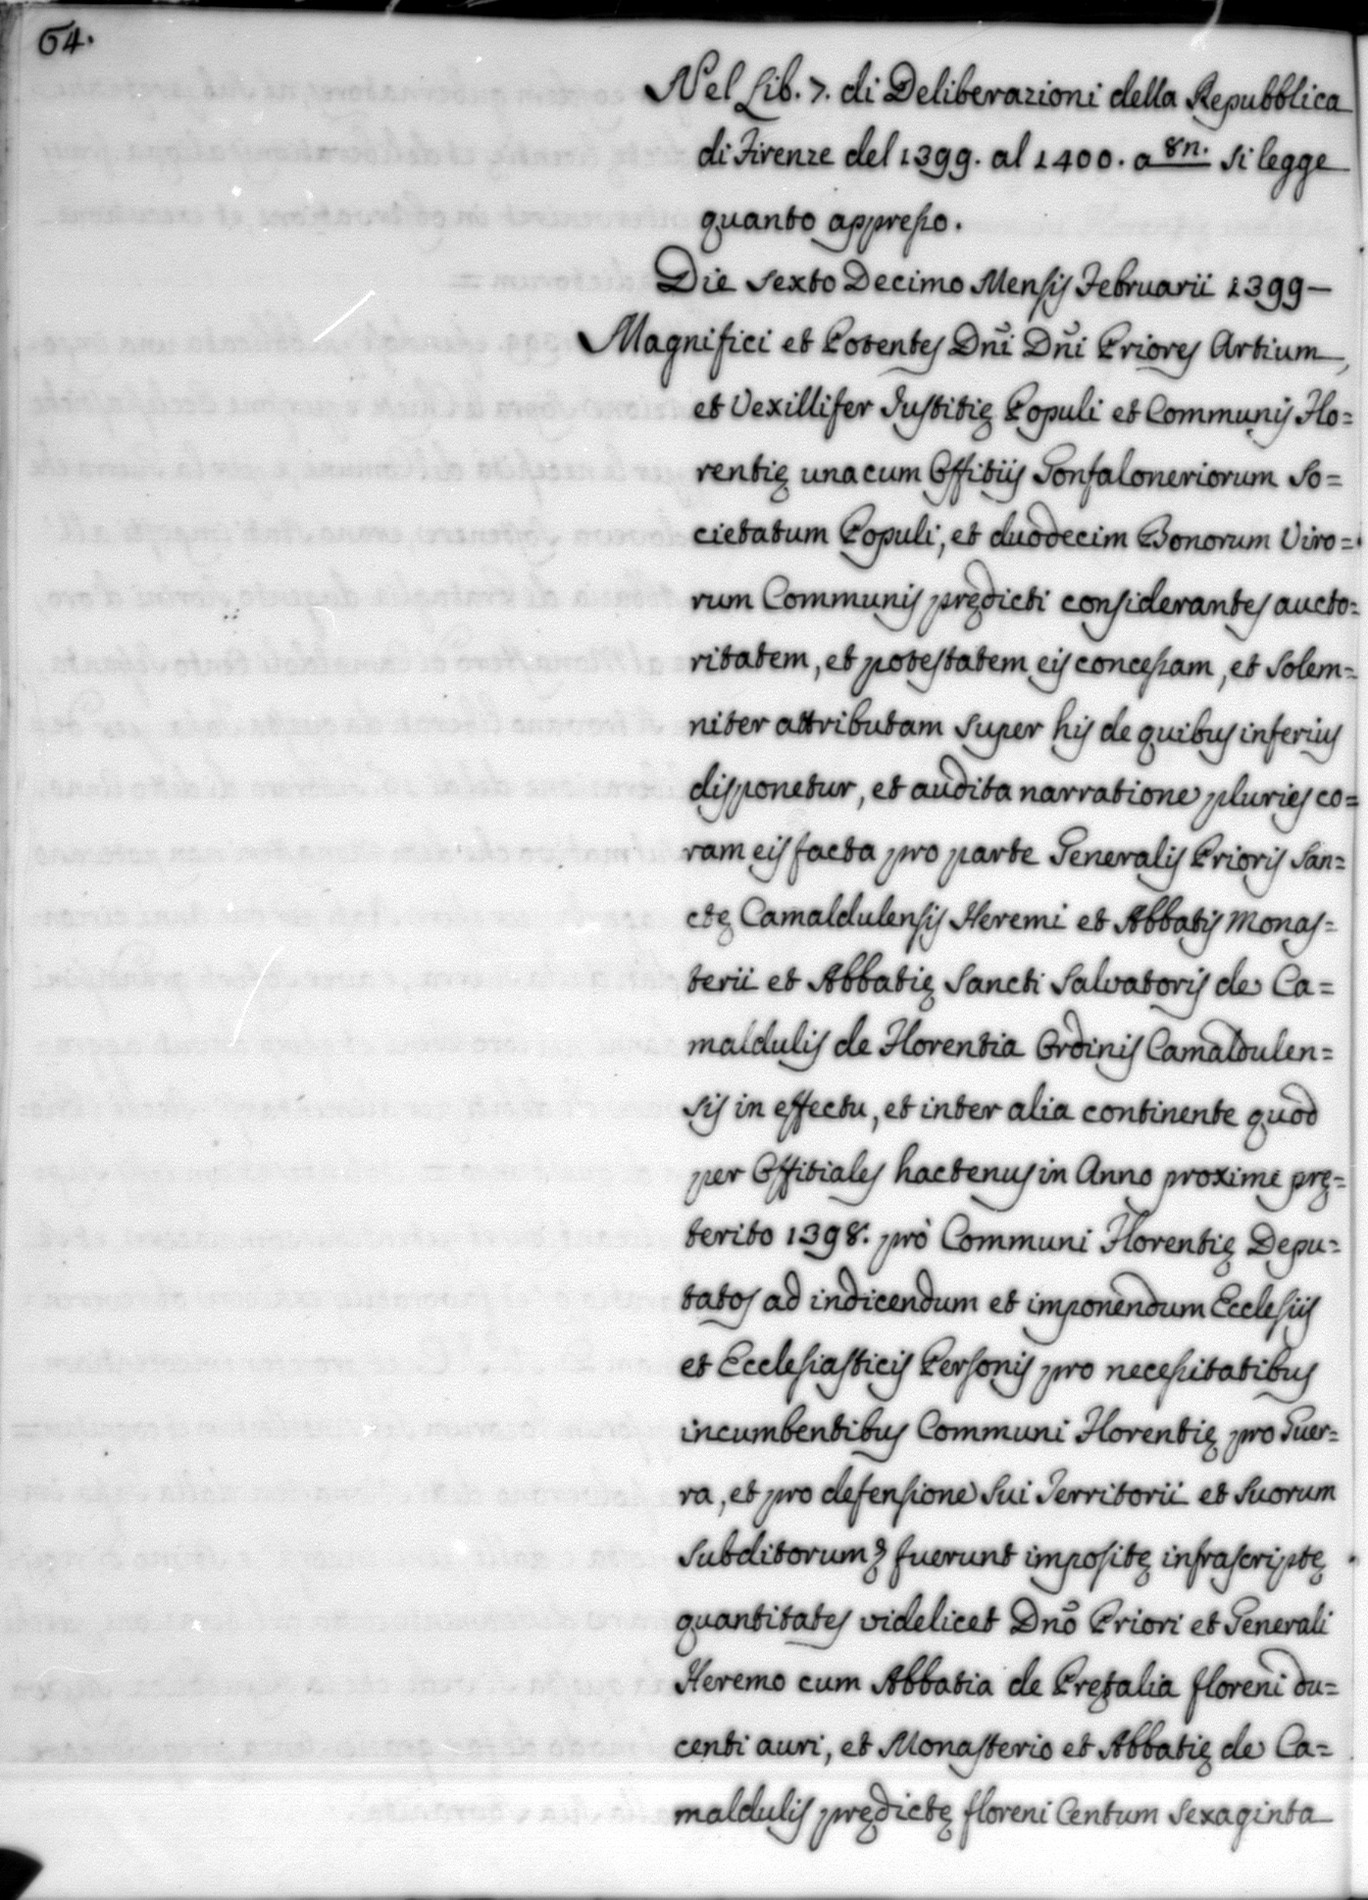 64.
Nel Lib. 7. di Deliberazioni della Repubblica
di Firenze del 1399. al 1400. a 8n. si legge
quanto appresso.
Die sexto Decimo Mensis Februarii 1399—
Magnifici et Potentes Dn̄i Dn̄i Priores Artium,
et Vexillifer Justitię Populi et Communis Flo=
rentię una cum Offitiis Gonfaloneriorum So=
cietatum Populi, et duodecim Bonorum Viro=
rum Communis prędicti considerantes aucto=
ritatem, et potestatem eis concessam, et solem=
niter attributam super his de quibus inferius
disponetur, et audita narratione pluries co=
ram eis facta pro parte Generalis Prioris San=
ctę Camaldulensis Heremi et Abbatis Monas=
terii et Abbatię Sancti Salvatoris de Ca=
maldulis de Florentia Ordinis Camaldulen=
sis in effectu, et inter alia continente quod
per Offitiales hactenus in Anno proxime prę=
terito 1398. prò Communi Florentię Depu=
tatos ad indicendum et imponendum Ecclesiis
et Ecclesiasticis Personis pro necessitatibus
incumbentibus Communi Florentię pro Guer=
ra, et pro defensione sui Territorii et suorum
subditorum fuerunt impositę infrascriptę
quantitates videlicet Dn̄o Priori et Generali
Heremo cum Abbatia de Pretalia floreni du=
centi auri, et Monasterio et Abbatię de Ca=
maldulis prędictę floreni Centum sexaginta